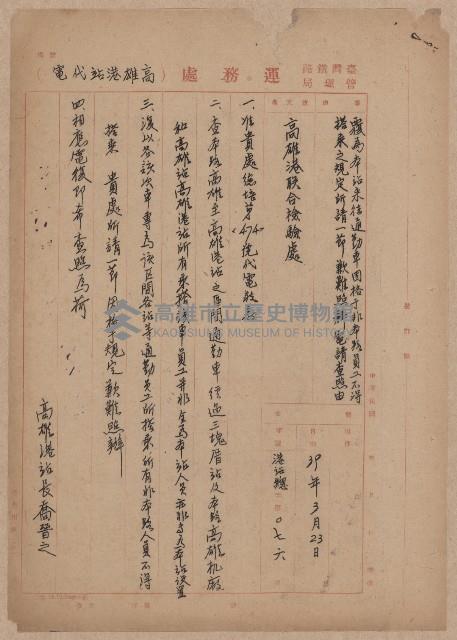 臺灣鐵路管理局
運務處
(高雄港站代電)
覆為本站來往通勤車因格于非本路員工不得
搭乘之規定所請一節歉難照辦電請查照由
高雄港聯合檢驗處
39年3月23日
港站總 〇七六
一、准貴處總培第474號代電敬悉
二、查本路高雄至高雄港站之區間通勤車經過三塊厝站及本路高雄机廠
和高雄站高雄港站所有乘搭該車員工並非全為本站人員亦非專為本站設置
三、復以各該次車專為該區間各站等通勤員工所搭乘所有非本路人員不得
搭乘 貴處所請一節因格于規定歉難照辦
四、相應電復即希查照為荷
高雄港站長喬晉之
高雄市立歷史博物館
KAOHSIUNG MUSEUM OF HISTORY